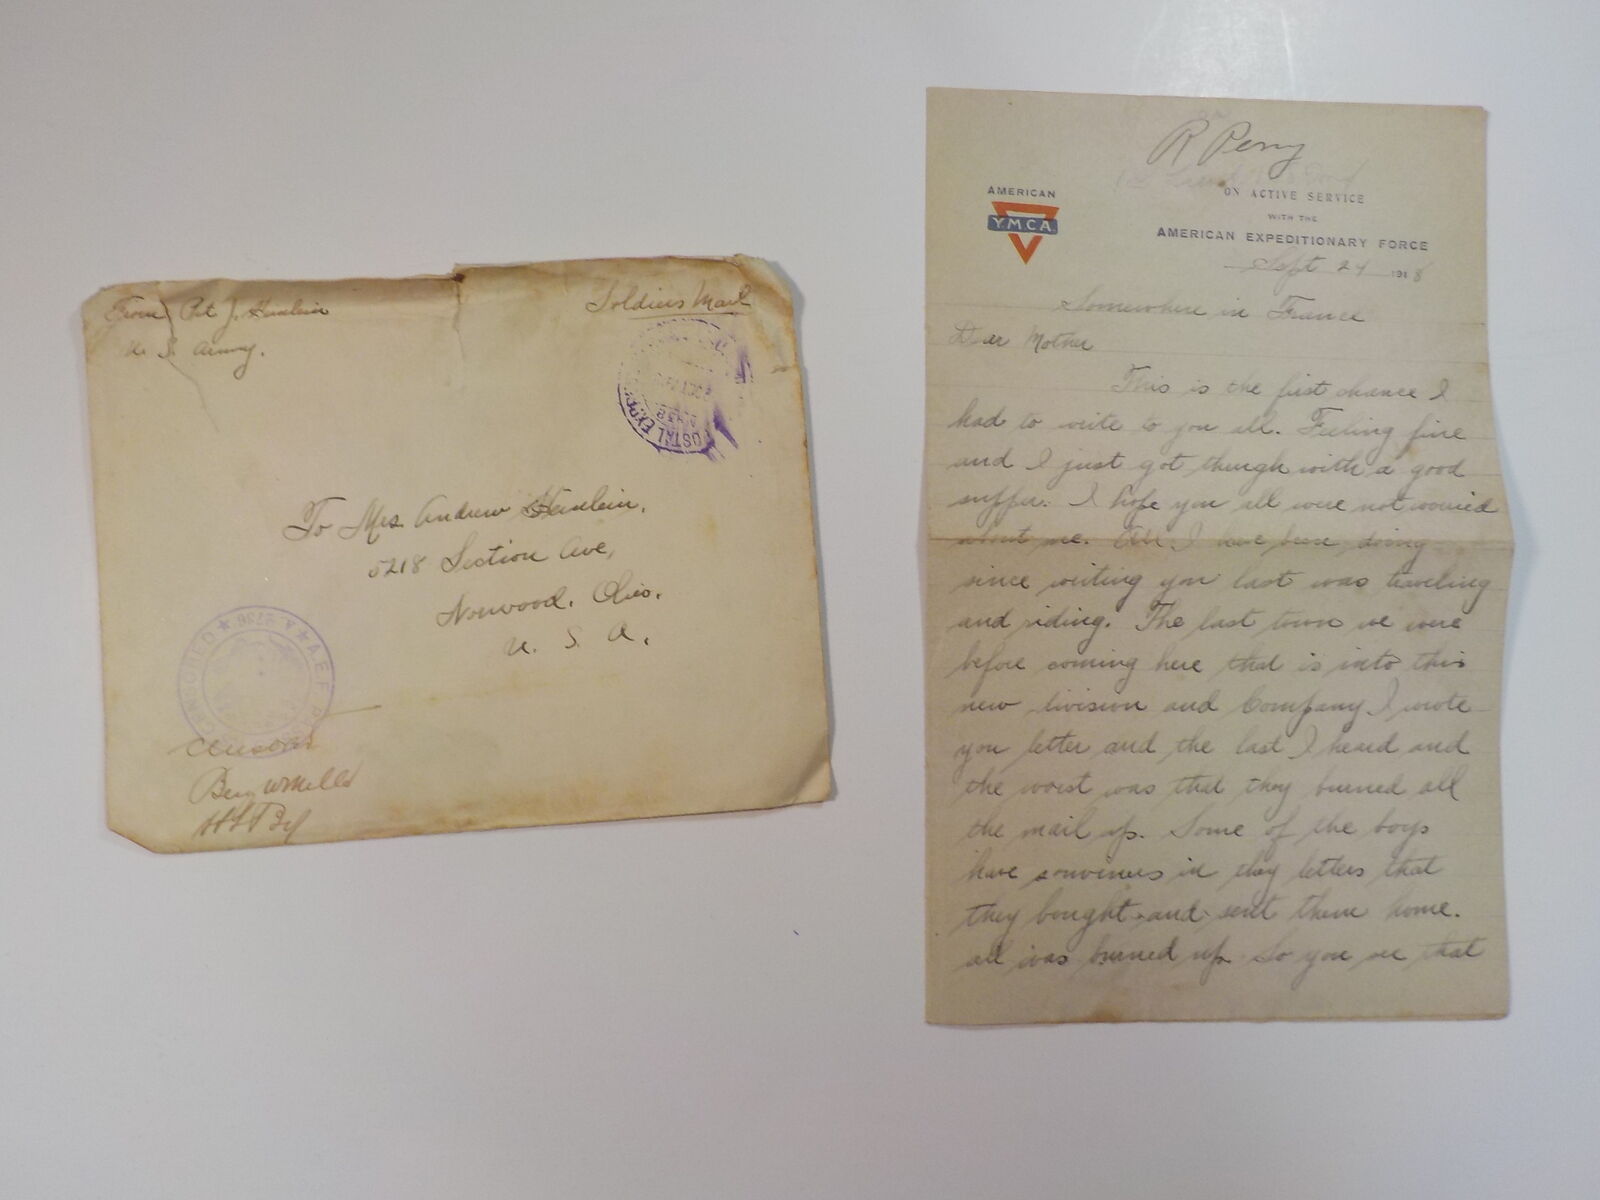 From Pvt J. Heinlein
U. S. Army.
Soldiers Mail
To Mrs. Andrew Heinlein,
5218 Section Ave,
Norwood, Ohio.
U. S. A.
CENSORED ★ A.2736 ★ A.E.F.
Censored
R Perry
AMERICAN
YMCA
ON ACTIVE SERVICE
WITH THE
AMERICAN EXPEDITIONARY FORCE
Sept 24 1918
Somewhere in France
Dear Mother
This is the first chance I
had to write to you all. Feeling fine
and I just got through with a good
supper. I hope you all were not worried
about me. All I have been doing
since writing you last was traveling
and riding. The last town we were
before coming here that is into this
new division and Company I wrote
you letter and the last I heard and
the worst was that they burned all
the mail up. Some of the boys
have souvenirs in they letters that
they bought and sent them home.
all was burned up. So you see that